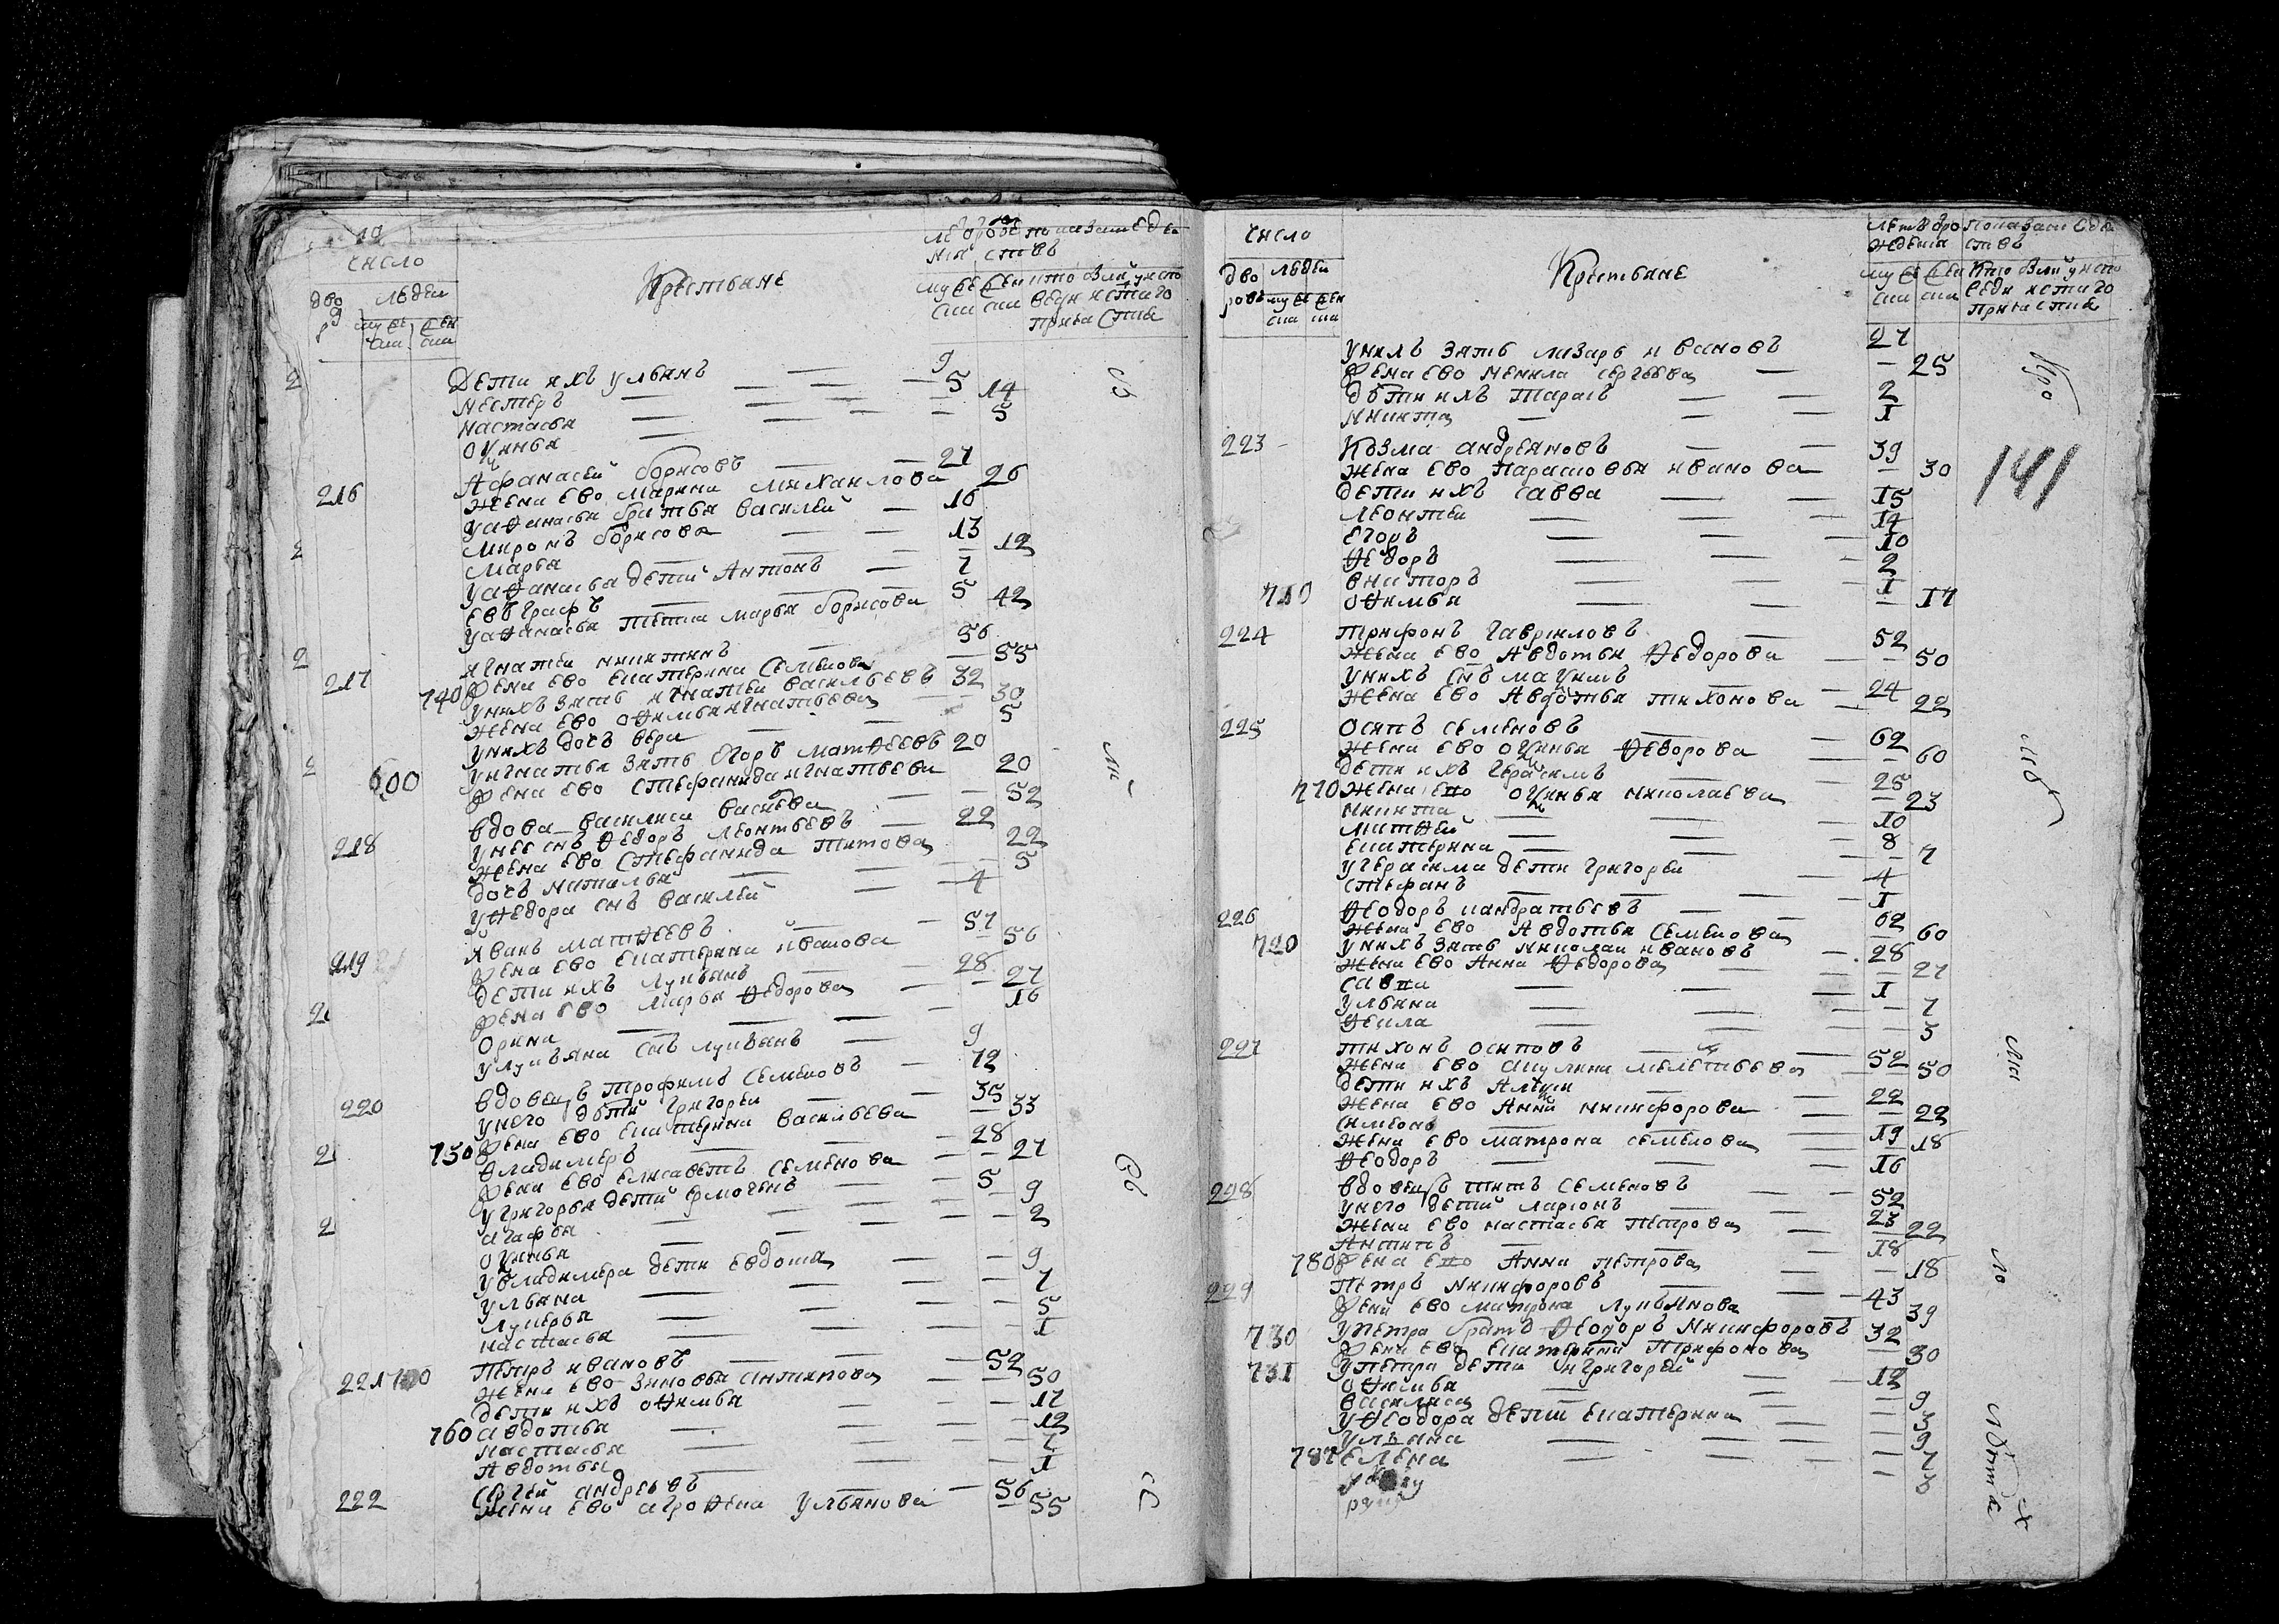 число
дво
людеи
Крестьяне
Дети ихъ Ульянъ — 9
Нестеръ — 5
Настасья — 14
Офимья — 5
216 Афанасей Борисовъ — 27
Жена ево Марина Михаилова 26
У Афанасья братья Василей — 16
Миронъ Борисовы — 13
Марья — 12
У Афанасья дети Антонъ — 7
Евъграфъ — 5
У Афанасья тетка Марья Борисова 42
217 Игнатеи Никитинъ — 56
Жена ево Екатерина Семенова — 55
740 У нихъ зять Игнатеи Васильевъ 32
Жена ево Офимья Игнатьева 30
У нихъ дочь Вера — 5
У Игнатья зять Егоръ Матфеевъ 20
600 Жена ево Стефанида Игнатьева 20
218 Вдова Василиса — 52
У нее снъ Федоръ Леонтьевъ — 22
Жена ево Стефанида Титова 22
Дочь Наталья — 5
У Федора снъ Василей — 4
219 Иванъ Матфеевъ — 57
Жена ево Екатерина Иванова — 56
Дети ихъ Лукьянъ — 28
Жена ево Марья Федорова — 27
Орина — 16
У Лукьяна снъ Лукьянъ — 9
220 Вдовецъ Трофимъ Семеновъ — 72
У него дети Григореи — 35
Жена ево Екатерина Васильева — 33
750 Владимеръ — 28
Жена ево Елисаветъ Семенова — 27
У Григорья дети Ермогенъ — 5
Агафья — 9
— 2
У Владимера дети Евдокия — 9
Ульяна — 7
Лукерья — 5
Настасья — 1
221 Петръ Ивановъ — 52
Жена ево Зиновья Антипова — 50
Дети ихъ Офимья — 17
760 Авдотья — 12
Настасья — 7
Авдотья — 1
222 Сергеи Андреевъ — 56
Жена ево Агрофена Ульянова — 55
число
дво
ровъ
людеи
Крестьяне
У нихъ зять Лазарь Ивановъ 27
Жена ево Ненила Сергеева — 25
Дети ихъ Тарасъ — 2
Никита — 1
223 Козма Андреяновъ — 39
Жена ево Парасковья Иванова — 30
141
Дети ихъ Савва — 15
Леонтеи — 14
Егоръ — 10
Федоръ — 2
Викторъ — 1
710 Офимья — 17
224 Трифонъ Гавриловъ — 52
Жена ево Авдотья Федорова — 50
У нихъ снъ — 24
Жена ево Авдотья Тихонова — 22
225 Осипъ Семеновъ — 62
Жена ево Федорова — 60
Дети ихъ Герасимъ — 25
770 Жена ево Николаева — 23
Никита — 10
Матфей — 8
Екатерина — 7
У Герасима дети Григореи — 4
Стефанъ — 1
226 Феодоръ Кандратьевъ — 62
Жена ево Авдотья Семенова — 60
720 У нихъ зять Николаи Ивановъ — 28
Жена ево Анна Федорова — 27
Савва — 1
Ульяна — 7
Фекла — 3
227 Тихонъ Осиповъ — 52
Жена ево Акулина Мелетьева — 50
Дети ихъ — 22
Жена ево Анна Никифорова — 22
Симеонъ — 19
Жена ево Матрона Семенова — 18
Феодоръ — 16
228 Вдовецъ Титъ Семеновъ — 52
У него дети Ларионъ — 23
Жена ево Настасья Петрова — 22
Антипъ — 18
780 Жена ево Анна Петрова — 18
229 Петръ Никифоровъ — 43
Жена ево Матрона Лукьянова — 39
730 У Петра братъ Феодоръ Никифоровъ 32
Жена ево Екатерина Трифонова — 30
731 У Петра дети Григорей — 12
Офимья — 9
Василиса — 3
У Феодора дети Екатерина — 9
Ульяна — 7
787 Елена — 3